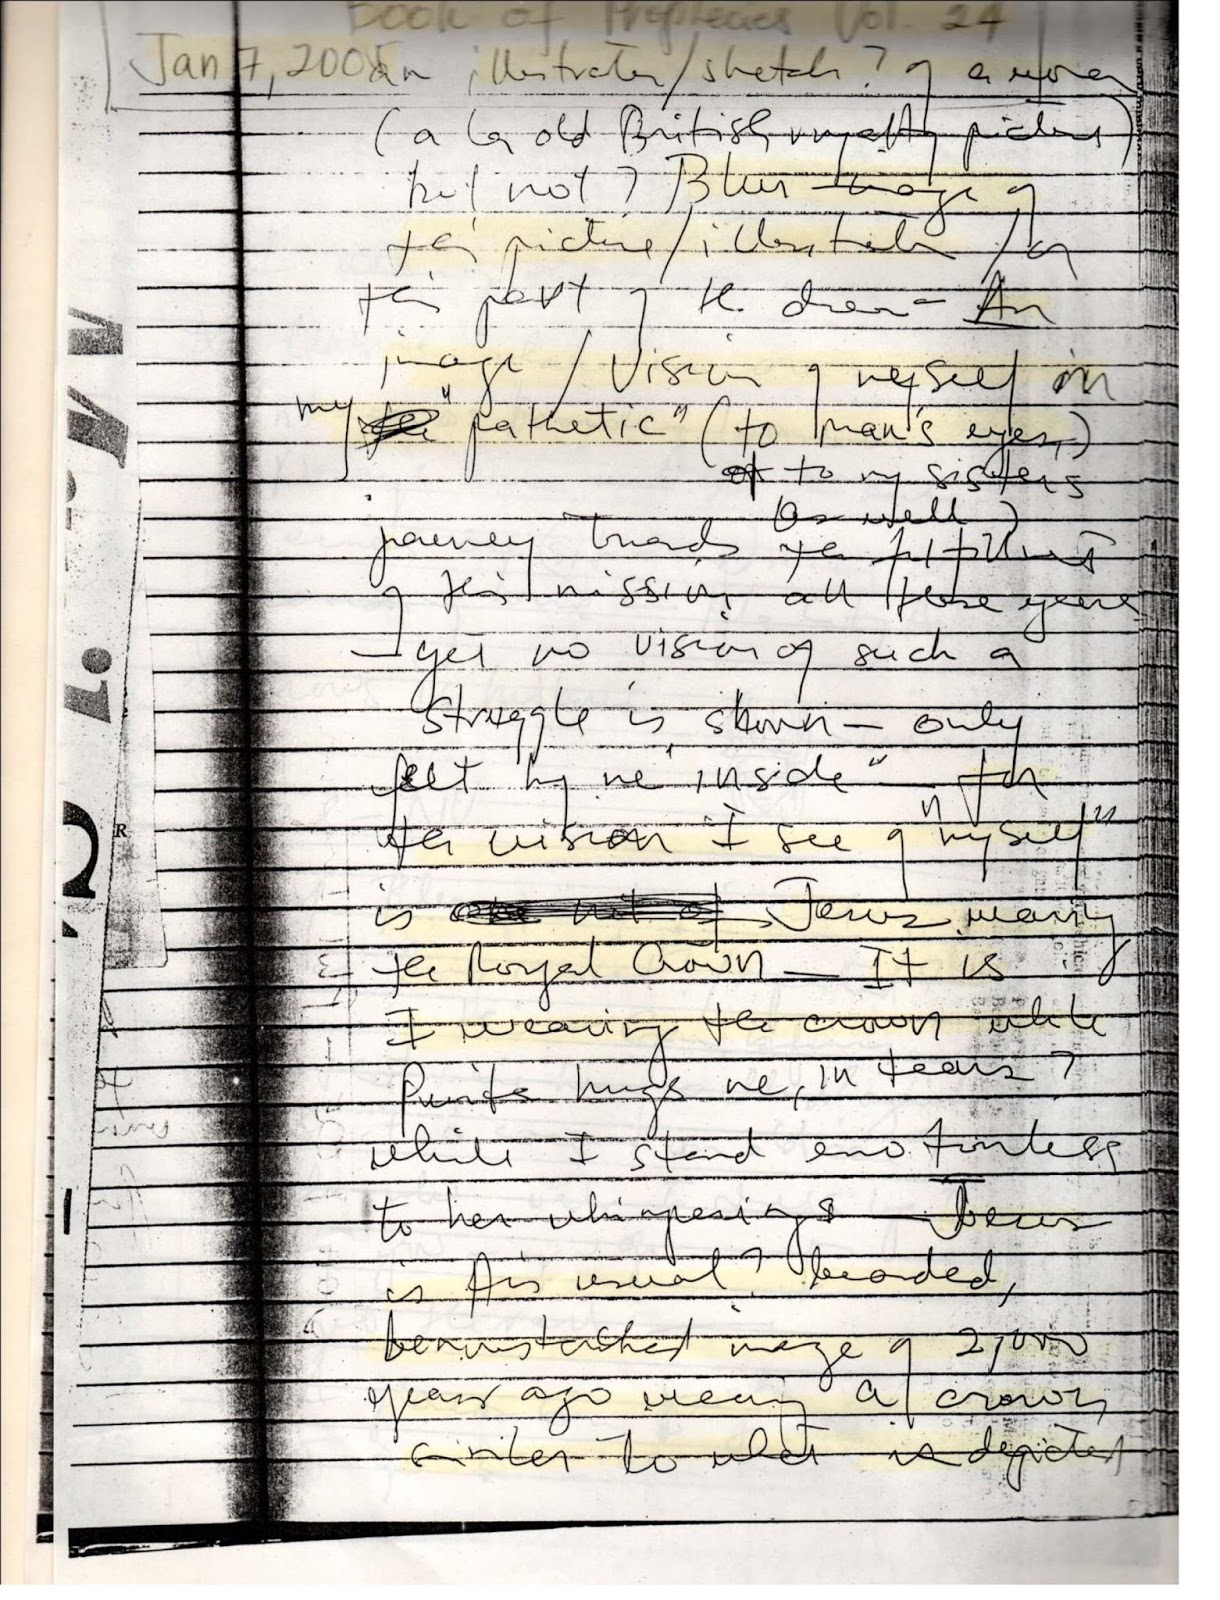 Book of Prophecies Vol. 24
Jan 7, 2005
an illustration/sketch? of a
(a la old British royalty picture)
but not? Blur image of
this picture/illustration/or
this part of the dream - An
image / Vision of myself in
my "pathetic" (to man's eyes,)
to my sisters
as well)
journey towards the fulfillment
of this mission all these years
— yet no vision of such a
struggle is shown — only
felt by me "inside" for
the vision I see of "myself"
is Jesus wearing
the Royal Crown — It is
I wearing the crown while
hugs me, in tears?
while I stand emotionless
to her whimperings — Jesus
is His usual? bearded,
bemustached image of 2,000
years ago wearing a crown
similar to what is depicted
R